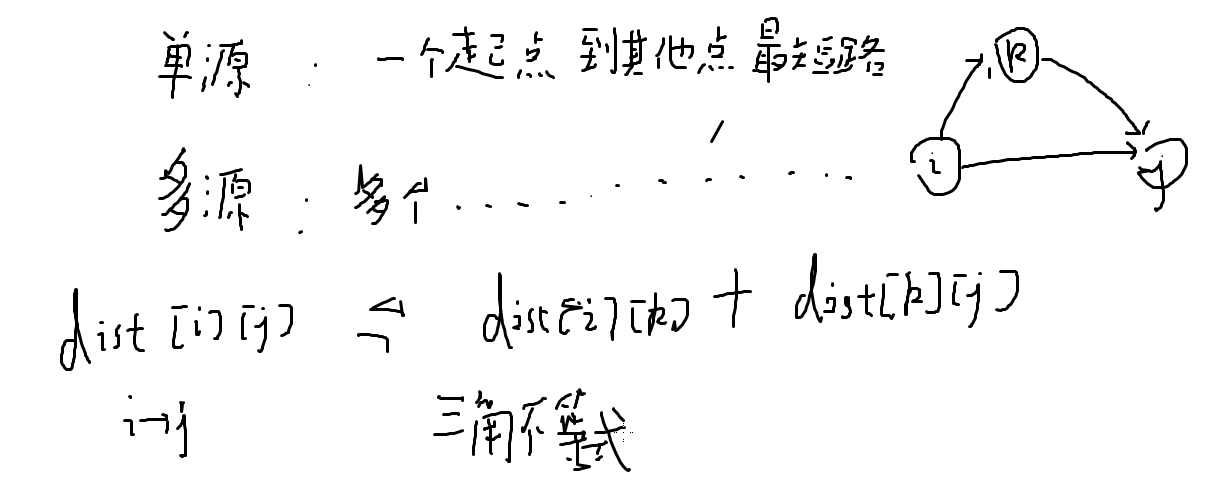 单源: 一个起点 到其他点 最短路
多源: 多个..........
k
i
j
dist[i][j] ≤ dist[i][k] + dist[k][j]
i→j 三角不等式